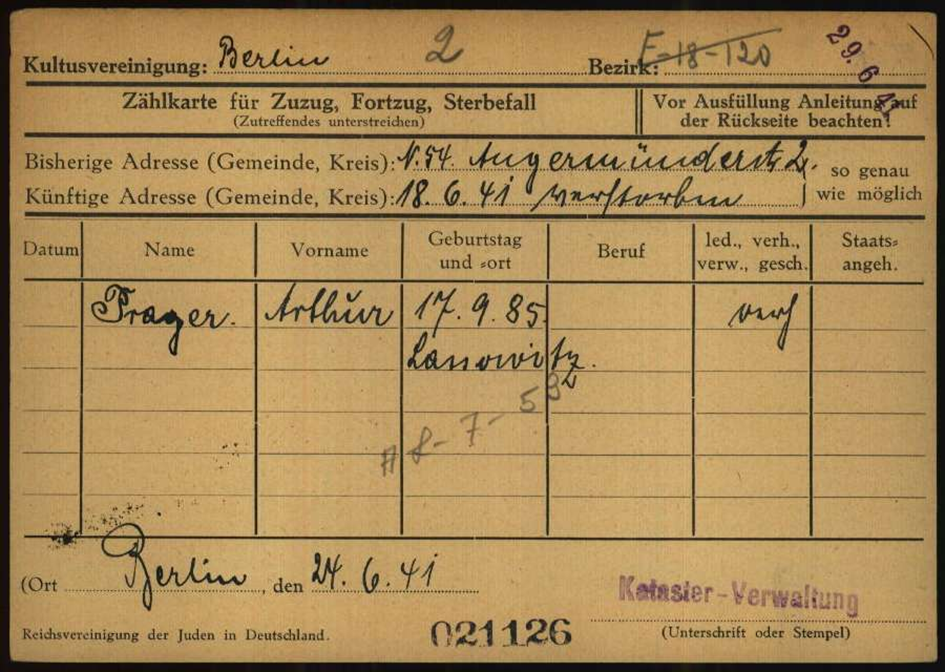 Kultusvereinigung: Berlin 2 Bezirk: F-18-120 29. 6. 41
Zählkarte für Zuzug, Fortzug, Sterbefall
(Zutreffendes unterstreichen)
Vor Ausfüllung Anleitung auf
der Rückseite beachten!
Bisherige Adresse (Gemeinde, Kreis): N. 54. Angermünderstr. 2.
Künftige Adresse (Gemeinde, Kreis): 18. 6. 41 verstorben
so genau
wie möglich
Datum Name Vorname Geburtstag und =ort Beruf led., verh., verw., gesch. Staats= angeh.
Prager. Arthur 17. 9. 85. verh
Lanowitz.
A 8-7-53
(Ort Berlin, den 24. 6. 41
Kataster-Verwaltung
Reichsvereinigung der Juden in Deutschland. 021126 (Unterschrift oder Stempel)